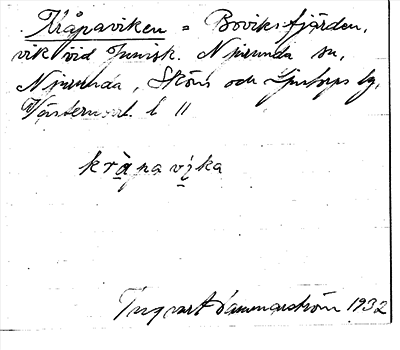 Kråpaviken = Boviksfjärden,
vik vid Junisk. Njurunda sn,
Njurunda, Sköns och Ljustorps tg,
Västernorrl. l 11
krapa vika
Ingvart Hammarström 1932